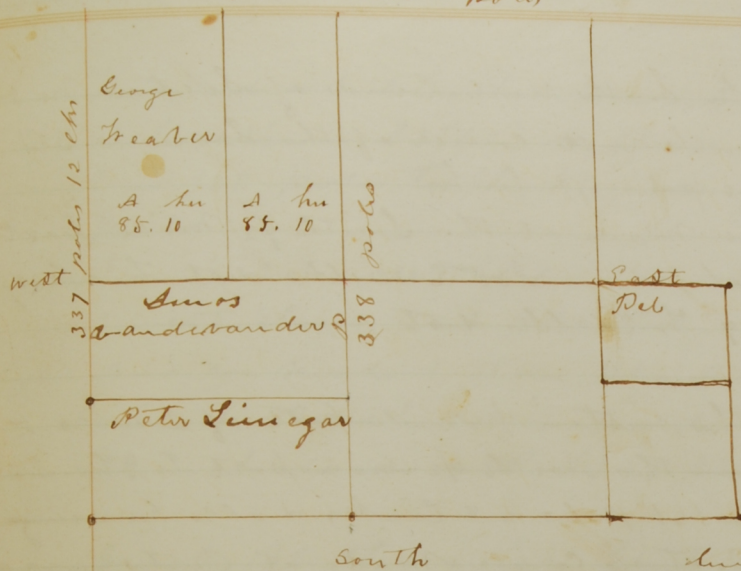 George
Weaver
A hu
85. 10
A hu
85. 10
337 poles 12 lks
338 poles
west
East
Amos
vandevander
Peter Linegar
south